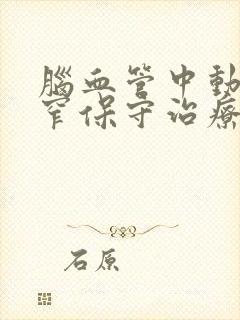 腦血管中動
窄保守治療
石原